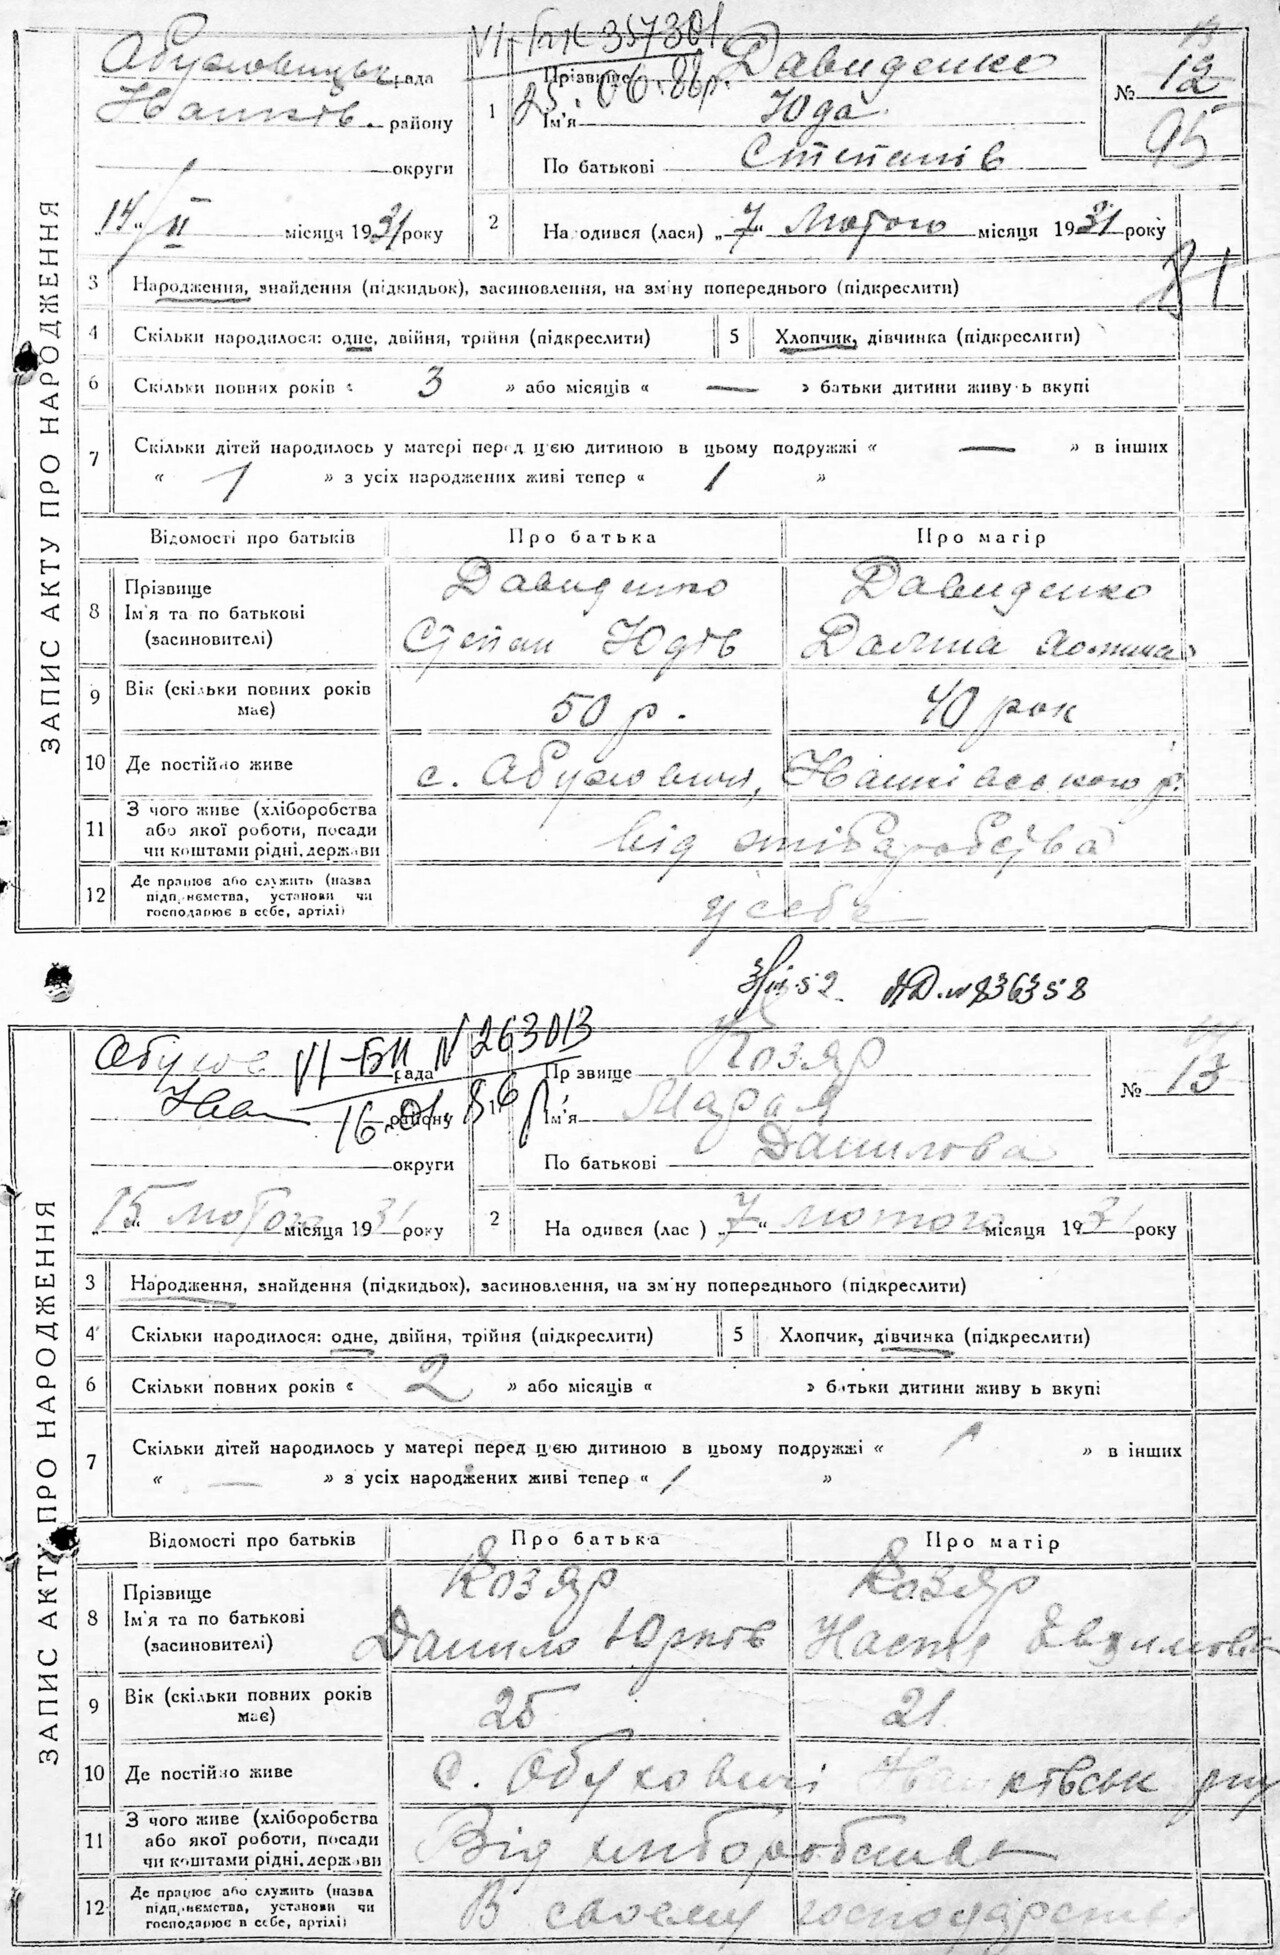 ЗАПИС АКТУ ПРО НАРОДЖЕННЯ
VI-БК 357301
рада
району
округи
"14" II місяця 1931 року
1 Прізвище Давиденко
Ім'я Юда
По батькові Степанів
№ 12
95
2 На одився (лася) „7" Лютого місяця 1931 року
81
3 Народження, знайдення (підкидьок), засиновлення, на зміну попереднього (підкреслити)
4 Скільки народилося: одне, двійня, трійня (підкреслити) 5 Хлопчик, дівчинка (підкреслити)
6 Скільки повних років « 3 » або місяців « — » батьки дитини живу ь вкупі
7 Скільки дітей народилось у матері перед цією дитиною в цьому подружжі « — » в інших
« 1 » з усіх народжених живі тепер « 1 »
Відомості про батьків Про батька Про матір
8 Прізвище Давиденко Давиденко
Ім'я та по батькові
(засиновителі) Степан Юдів
9 Вік (скільки повних років має) 50 р. 40 рок
10 Де постійно живе с. Обуховичі,
11 З чого живе (хліборобства
або якої роботи, посади
чи коштами рідні, держави від хліборобства
12 Де працює або служить (назва
підприємства, установи чи
господарює в себе, артілі) у себе
№ 836358
ЗАПИС АКТУ ПРО НАРОДЖЕННЯ
VI-БК N 263013
рада
16.01.86 р
району
округи
„15" лютого місяця 1931 року
1 Пр звище Козяр
Ім'я Марія
По батькові Данилова
№ 13
2 На одився (лас ) „7" лютого місяця 1931 року
3 Народження, знайдення (підкидьок), засиновлення, на зм ну попереднього (підкреслити)
4 Скільки народилося: одне, двійня, трійня (підкреслити) 5 Хлопчик, дівчинка (підкреслити)
6 Скільки повних років « 2 » або місяців « » батьки дитини живу ь вкупі
7 Скільки дітей народилось у матері перед цією дитиною в цьому подружжі « 1 » в інших
« — » з усіх народжених живі тепер « 1 »
Відомості про батьків Про батька Про матір
8 Прізвище Козяр Козяр
Ім'я та по батькові
(засиновителі) Данило Юрків Настя
9 Вік (скільки повних років має) 25 21
10 Де постійно живе с. Обуховичі
11 З чого живе (хліборобства
або якої роботи, посади
чи коштами рідні, держави Від хліборобства
12 Де працює або служить (назва
підприємства, установи чи
господарює в себе, артілі) В своему господарстві